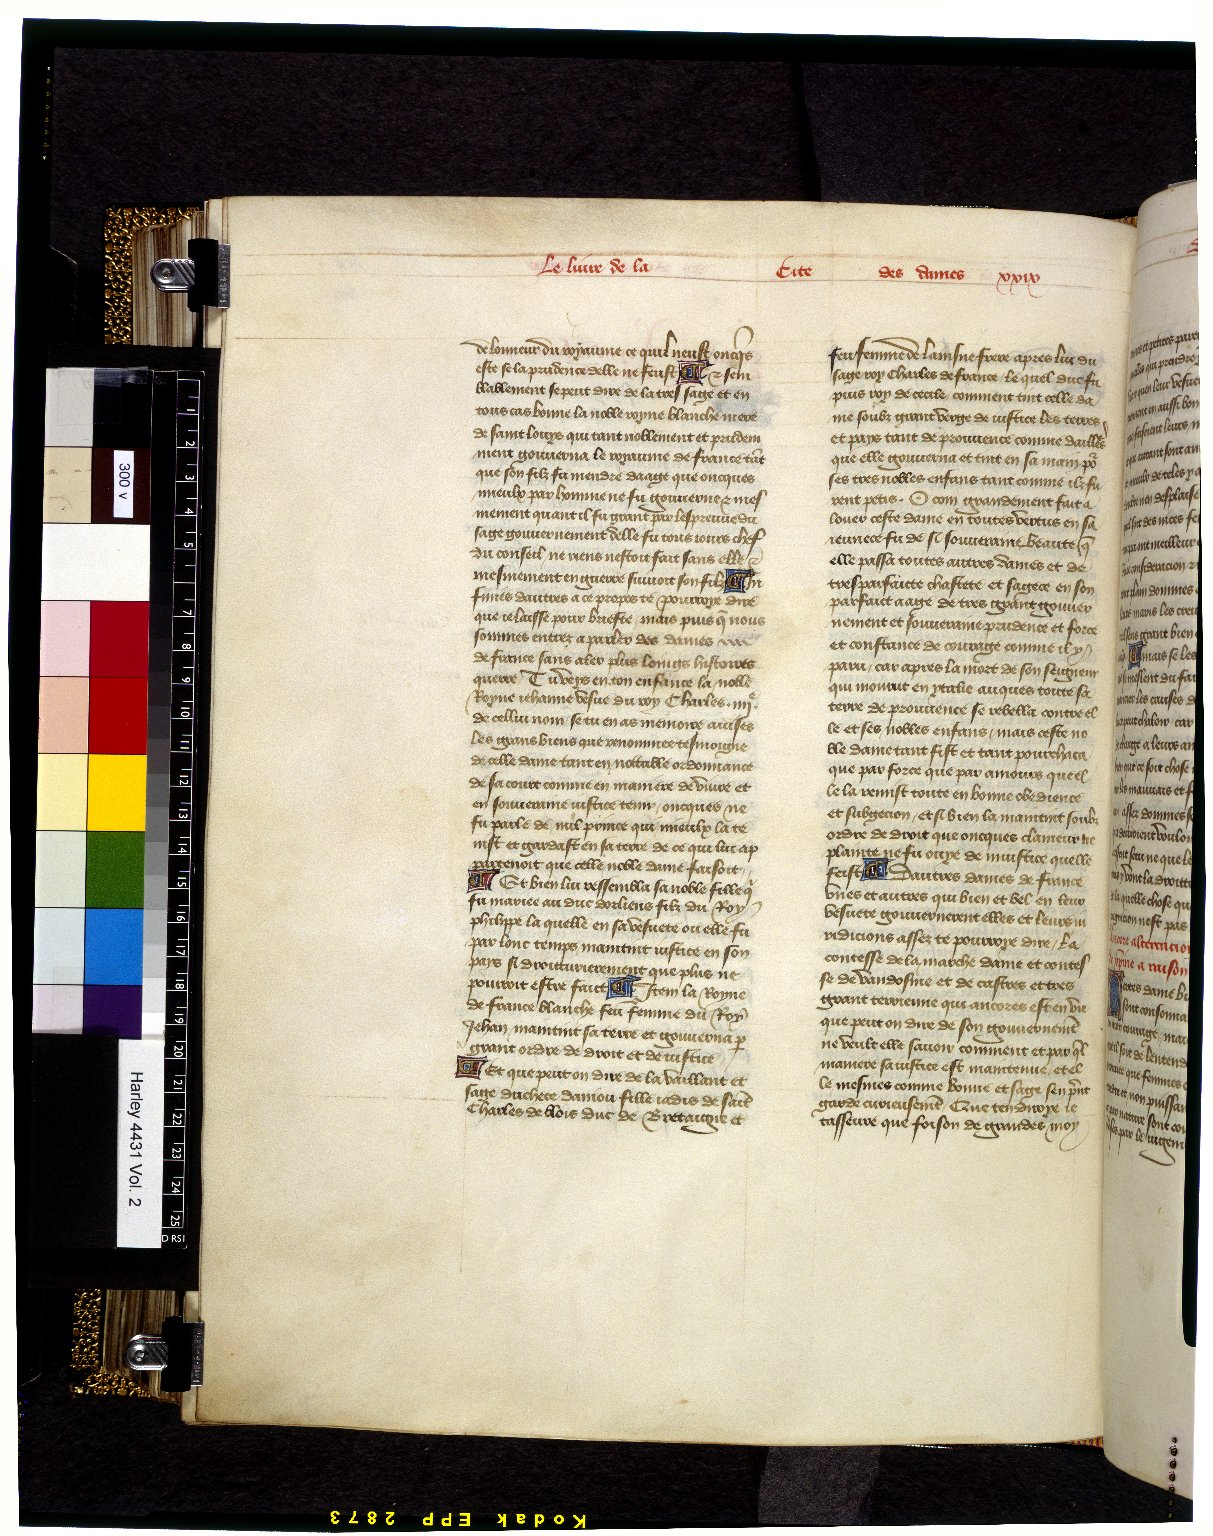 Le livre de la Cite des dames xxix
de lonneur du royaume ce quil neust oncqs
este se la prudence delle ne feust Et sem
blablement se peut dire de la tres sage et en
tous cas bonne la noble royne blanche mere
de saint Louys qui tant noblement et prudem
ment gouverna le royaume de france tant
que son filz fu mendre daage que oncques
mieulx par homme ne fu gouverne et mes
mement quant il fu grant par lespreuve du
sage gouvernement delle fu tous jours chef
du conseil ne riens nestoit fait sans elle et
mesmement en guerre suivoit son filz In
finies dautres a ce propos te pourroye dire
que je laisse pour briefte mais puis q nous
sommes entrez a parler des dames
de france sans aler plus loings histoires
querre Tu veys en ton enfance la noble
Royne jehanne vesve du roy Charles .iiiie.
de cellui nom se tu en as memoire avises
les grans biens que renommee tesmoigne
de celle dame tant en nottable ordonnance
de sa court comme en maniere de vivre et
en souveraine justice tenir oncques ne
fu parle de nul prince qui mieulx la te
nist et gardast en sa terre de ce qui lui ap
partenoit que celle noble dame faisoit
Et bien lui ressembla sa noble fille q
fu mariee au duc dorliens filz du Roy
philippe la quelle en sa vesvete ou elle fu
par lonc temps maintint justice en son
pays si droitturierement que plus ne
pourroit estre fait Item la Royne
de france blanche feu femme du Roy
Jehan maintint sa terre et gouverna p
grant ordre de droit et de justice
Et que peut on dire de la vaillant et
sage duchece danjou fille jadis de saint
Charles de blois duc de Bretaigne et
feu femme de lainsne frere apres lui du
sage roy Charles de france le quel duc fu
puis roy de cecile comment tint celle da
me soubz grant verge de justice les terres
et pays tant de prouvence comme dailleurs
que elle gouverna et tint en sa main por
ses tres nobles enfans tant comme ilz fu
rent petis. O com grandement fait a
louer ceste dame en toutes vertus en sa
jeunece fu de si souveraine beaute q
elle passa toutes autres dames et de
tres parfaicte chastete et sagece en son
parfait aage de tres grant gouver
nement et souveraine prudence et force
et constance de courage comme il y
paru, car apres la mort de son seigneur
qui mourut en ytalie auques toute sa
terre de prouvence se rebella contre el
le et ses nobles enfans, mais ceste no
ble dame tant fist et tant pourchaca
que par force que par amours que el
le la remist toute en bonne obedience
et subgecion, et si bien la maintint soubz
ordre de droit que oncques clameur ne
plainte ne fu ouye de injustice quelle
feist Dautres dames de france
unes et autres qui bien et bel en leur
vesvete gouvernerent elles et leurs ju
ridicions assez te pourroye dire, La
contesse de la marche dame et contes
se de vandosme et de castres et tres
grant terrienne qui ancores est en vie
que peut on dire de son gouvernement
ne veult elle savoir comment et par ql
maniere sa justice est maintenue, et el
le mesmes comme bonne et sage sen prent
garde curieusement Que ten diroye je
tasseure que foison de grandes moy
300 v
Harley 4431 Vol. 2
1
2
3
4
5
7
8
9
10
11
12
13
14
15
16
17
18
19
20
21
22
23
24
25
Kodak EPP 2873